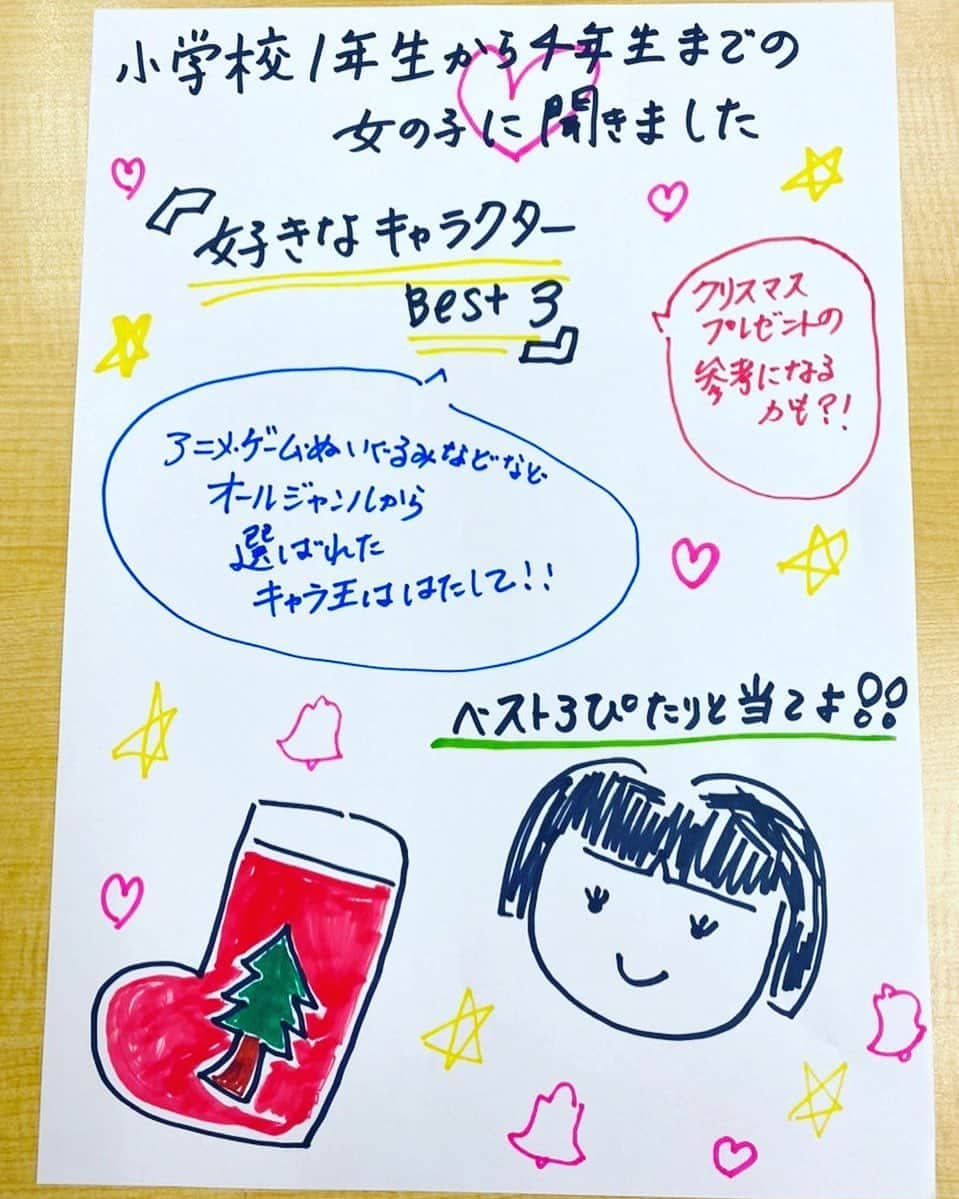 小学校1年生から4年生までの
女の子に聞きました
『好きなキャラクター
Best 3』
クリスマス
プレゼントの
参考になる
カモ?!
アニメ・ゲーム・ぬいぐるみなどなど
オールジャンルから
選ばれた
キャラ王ははたして!!
ベスト3ぴたりと当てよ!!